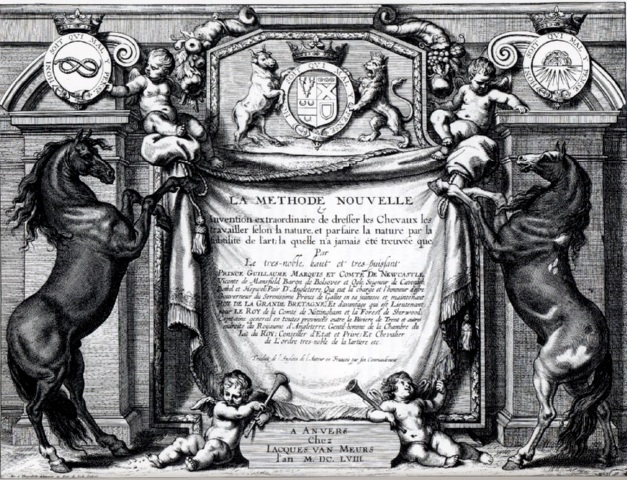 HONI SOIT QUI MAL Y PENSE
LA METHODE NOUVELLE
&
Invention extraordinaire de dresser les Chevaux les
travailler selon la nature, et parfaire la nature par la
subtilité de l'art: la quelle n'a jamais été treuvée que
Par
Le tres-noble, haut et tres-puissant
PRINCE GUILLAUME MARQUIS ET COMTE DE NEWCASTLE
Vicomte de Mansfield, Baron de Bolsover et Ogle, Seigneur de
Pair D'Angleterre, Qui eut la charge et l'honneur d'être
Gouverneur du Serenissime Prince de Galles en sa jeunesse et maintenant
ROY DE LA GRANDE BRETAGNE, Et davantage qui est Lieutenant
pour LE ROY de la Comté de Nottingham et la Forest de Sherwood,
Capitaine general en toutes provinces outre la Riviere de Trent et autres
endroits du Royaume d'Angleterre, Gentil-homme de la Chambre du
Lict du ROY, Conseiller d'Etat et Privé, Et Chevalier
de L'ordre tres-noble de la Jartiere etc.
Traduit de l'Anglois de l'Auteur en François par son Commandement
A ANVERS
Chez
IACQUES VAN MEURS
l'an M. DC. LVIII.